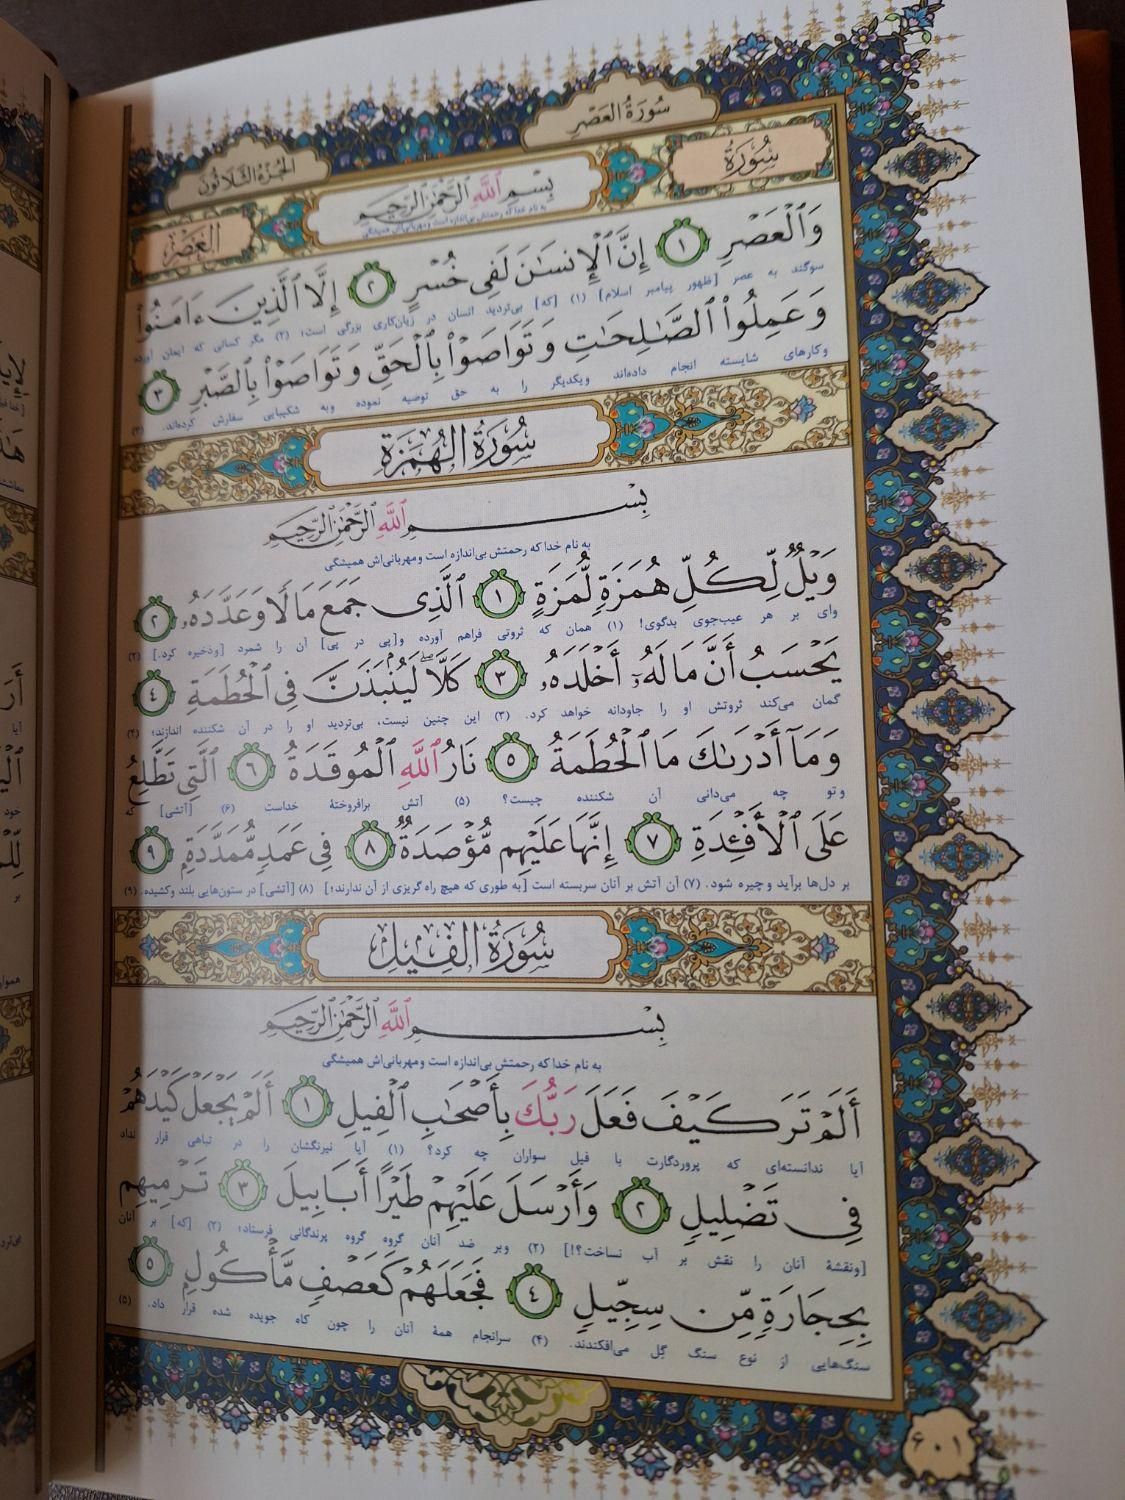 سُورَةُ العَصْرِ
الجُزْءُ الثَّلَاثُونَ
سُورَةُ
العَصْرِ
بِسْمِ ٱللَّهِ ٱلرَّحْمَٰنِ ٱلرَّحِيمِ
به نام خدا که رحمتش بی‌اندازه است و مهربانی‌اش همیشگی
وَٱلْعَصْرِ ١ إِنَّ ٱلْإِنسَٰنَ لَفِى خُسْرٍ ٢ إِلَّا ٱلَّذِينَ ءَامَنُوا۟
سوگند به عصر [ظهور پیامبر اسلام] (۱) [که] بی‌تردید انسان در زیان‌کاری بزرگی است؛ (۲) مگر کسانی که ایمان آورده
وَعَمِلُوا۟ ٱلصَّٰلِحَٰتِ وَتَوَاصَوْا۟ بِٱلْحَقِّ وَتَوَاصَوْا۟ بِٱلصَّبْرِ ٣
و کارهای شایسته انجام داده‌اند و یکدیگر را به حق توصیه نموده و به شکیبایی سفارش کرده‌اند. (۳)
سُورَةُ الهُمَزَةِ
بِسْمِ ٱللَّهِ ٱلرَّحْمَٰنِ ٱلرَّحِيمِ
به نام خدا که رحمتش بی‌اندازه است و مهربانی‌اش همیشگی
وَيْلٌ لِّكُلِّ هُمَزَةٍ لُّمَزَةٍ ١ ٱلَّذِى جَمَعَ مَالًا وَعَدَّدَهُۥ ٢
وای بر هر عیب‌جوی بدگوی! (۱) همان که ثروتی فراهم آورده و [پی در پی] آن را شمرد [و ذخیره کرد.] (۲)
يَحْسَبُ أَنَّ مَالَهُۥٓ أَخْلَدَهُۥ ٣ كَلَّا ۖ لَيُنۢبَذَنَّ فِى ٱلْحُطَمَةِ ٤
گمان می‌کند ثروتش او را جاودانه خواهد کرد. (۳) این چنین نیست، بی‌تردید او را در آن شکننده اندازند؛ (۴)
وَمَآ أَدْرَىٰكَ مَا ٱلْحُطَمَةُ ٥ نَارُ ٱللَّهِ ٱلْمُوقَدَةُ ٦ ٱلَّتِى تَطَّلِعُ
و تو چه می‌دانی آن شکننده چیست؟ (۵) آتش برافروختهٔ خداست (۶) [آتشی] که
عَلَى ٱلْأَفْـِٔدَةِ ٧ إِنَّهَا عَلَيْهِم مُّؤْصَدَةٌ ٨ فِى عَمَدٍ مُّمَدَّدَةٍۭ ٩
بر دل‌ها برآید و چیره شود. (۷) آن آتش بر آنان سربسته است [به طوری که هیچ راه گریزی از آن ندارند؛] (۸) [آتشی] در ستون‌هایی بلند و کشیده. (۹)
سُورَةُ الفِيلِ
بِسْمِ ٱللَّهِ ٱلرَّحْمَٰنِ ٱلرَّحِيمِ
به نام خدا که رحمتش بی‌اندازه است و مهربانی‌اش همیشگی
أَلَمْ تَرَ كَيْفَ فَعَلَ رَبُّكَ بِأَصْحَٰبِ ٱلْفِيلِ ١ أَلَمْ يَجْعَلْ كَيْدَهُمْ
آیا ندانسته‌ای که پروردگارت با فیل سواران چه کرد؟ (۱) آیا نیرنگشان را در تباهی قرار نداد
فِى تَضْلِيلٍ ٢ وَأَرْسَلَ عَلَيْهِمْ طَيْرًا أَبَابِيلَ ٣ تَرْمِيهِم
[و نقشهٔ آنان را نقش بر آب نساخت؟!] (۲) و بر ضد آنان گروه گروه پرندگانی فرستاد؛ (۳) [که] بر آنان
بِحِجَارَةٍ مِّن سِجِّيلٍ ٤ فَجَعَلَهُمْ كَعَصْفٍ مَّأْكُولٍۭ ٥
سنگ‌هایی از نوع سنگ گِل می‌افکندند. (۴) سرانجام همهٔ آنان را چون کاه جویده شده قرار داد. (۵)
٦٠١